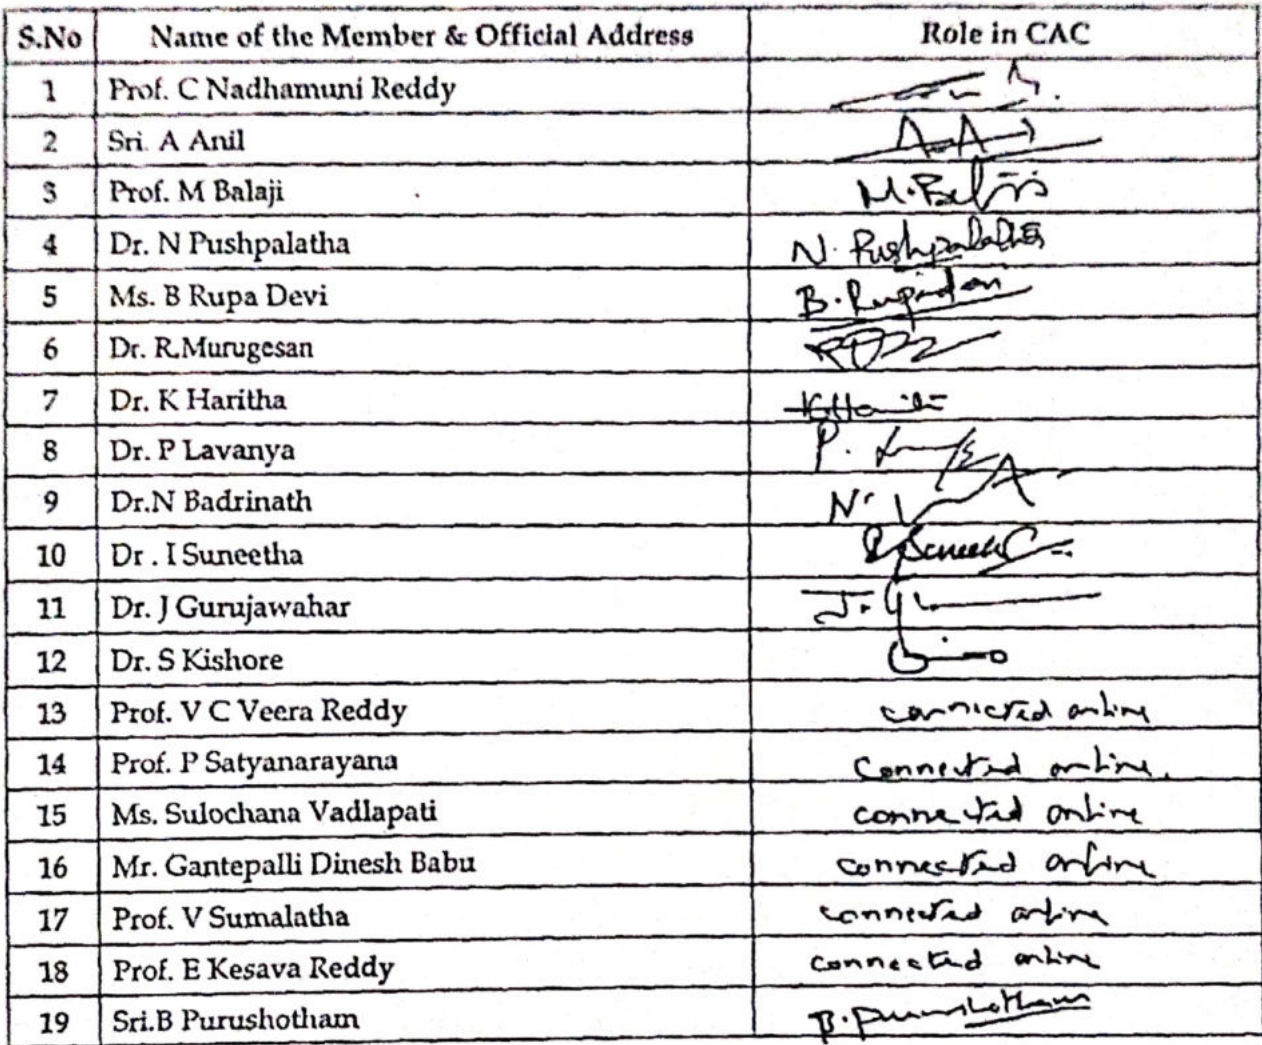 S.No Name of the Member & Official Address Role in CAC
1 Prof. C Nadhamuni Reddy
2 Sri. A Anil
3 Prof. M Balaji M. Balaji
4 Dr. N Pushpalatha N. Pushpalatha
5 Ms. B Rupa Devi B. Rupadevi
6 Dr. R.Murugesan
7 Dr. K Haritha K. Haritha
8 Dr. P Lavanya P.
9 Dr.N Badrinath N.
10 Dr . I Suneetha
11 Dr. J Gurujawahar J.
12 Dr. S Kishore
13 Prof. V C Veera Reddy connected online
14 Prof. P Satyanarayana Connected online.
15 Ms. Sulochana Vadlapati connected online
16 Mr. Gantepalli Dinesh Babu connected online
17 Prof. V Sumalatha connected online
18 Prof. E Kesava Reddy connected online
19 Sri.B Purushotham B. Purushotham